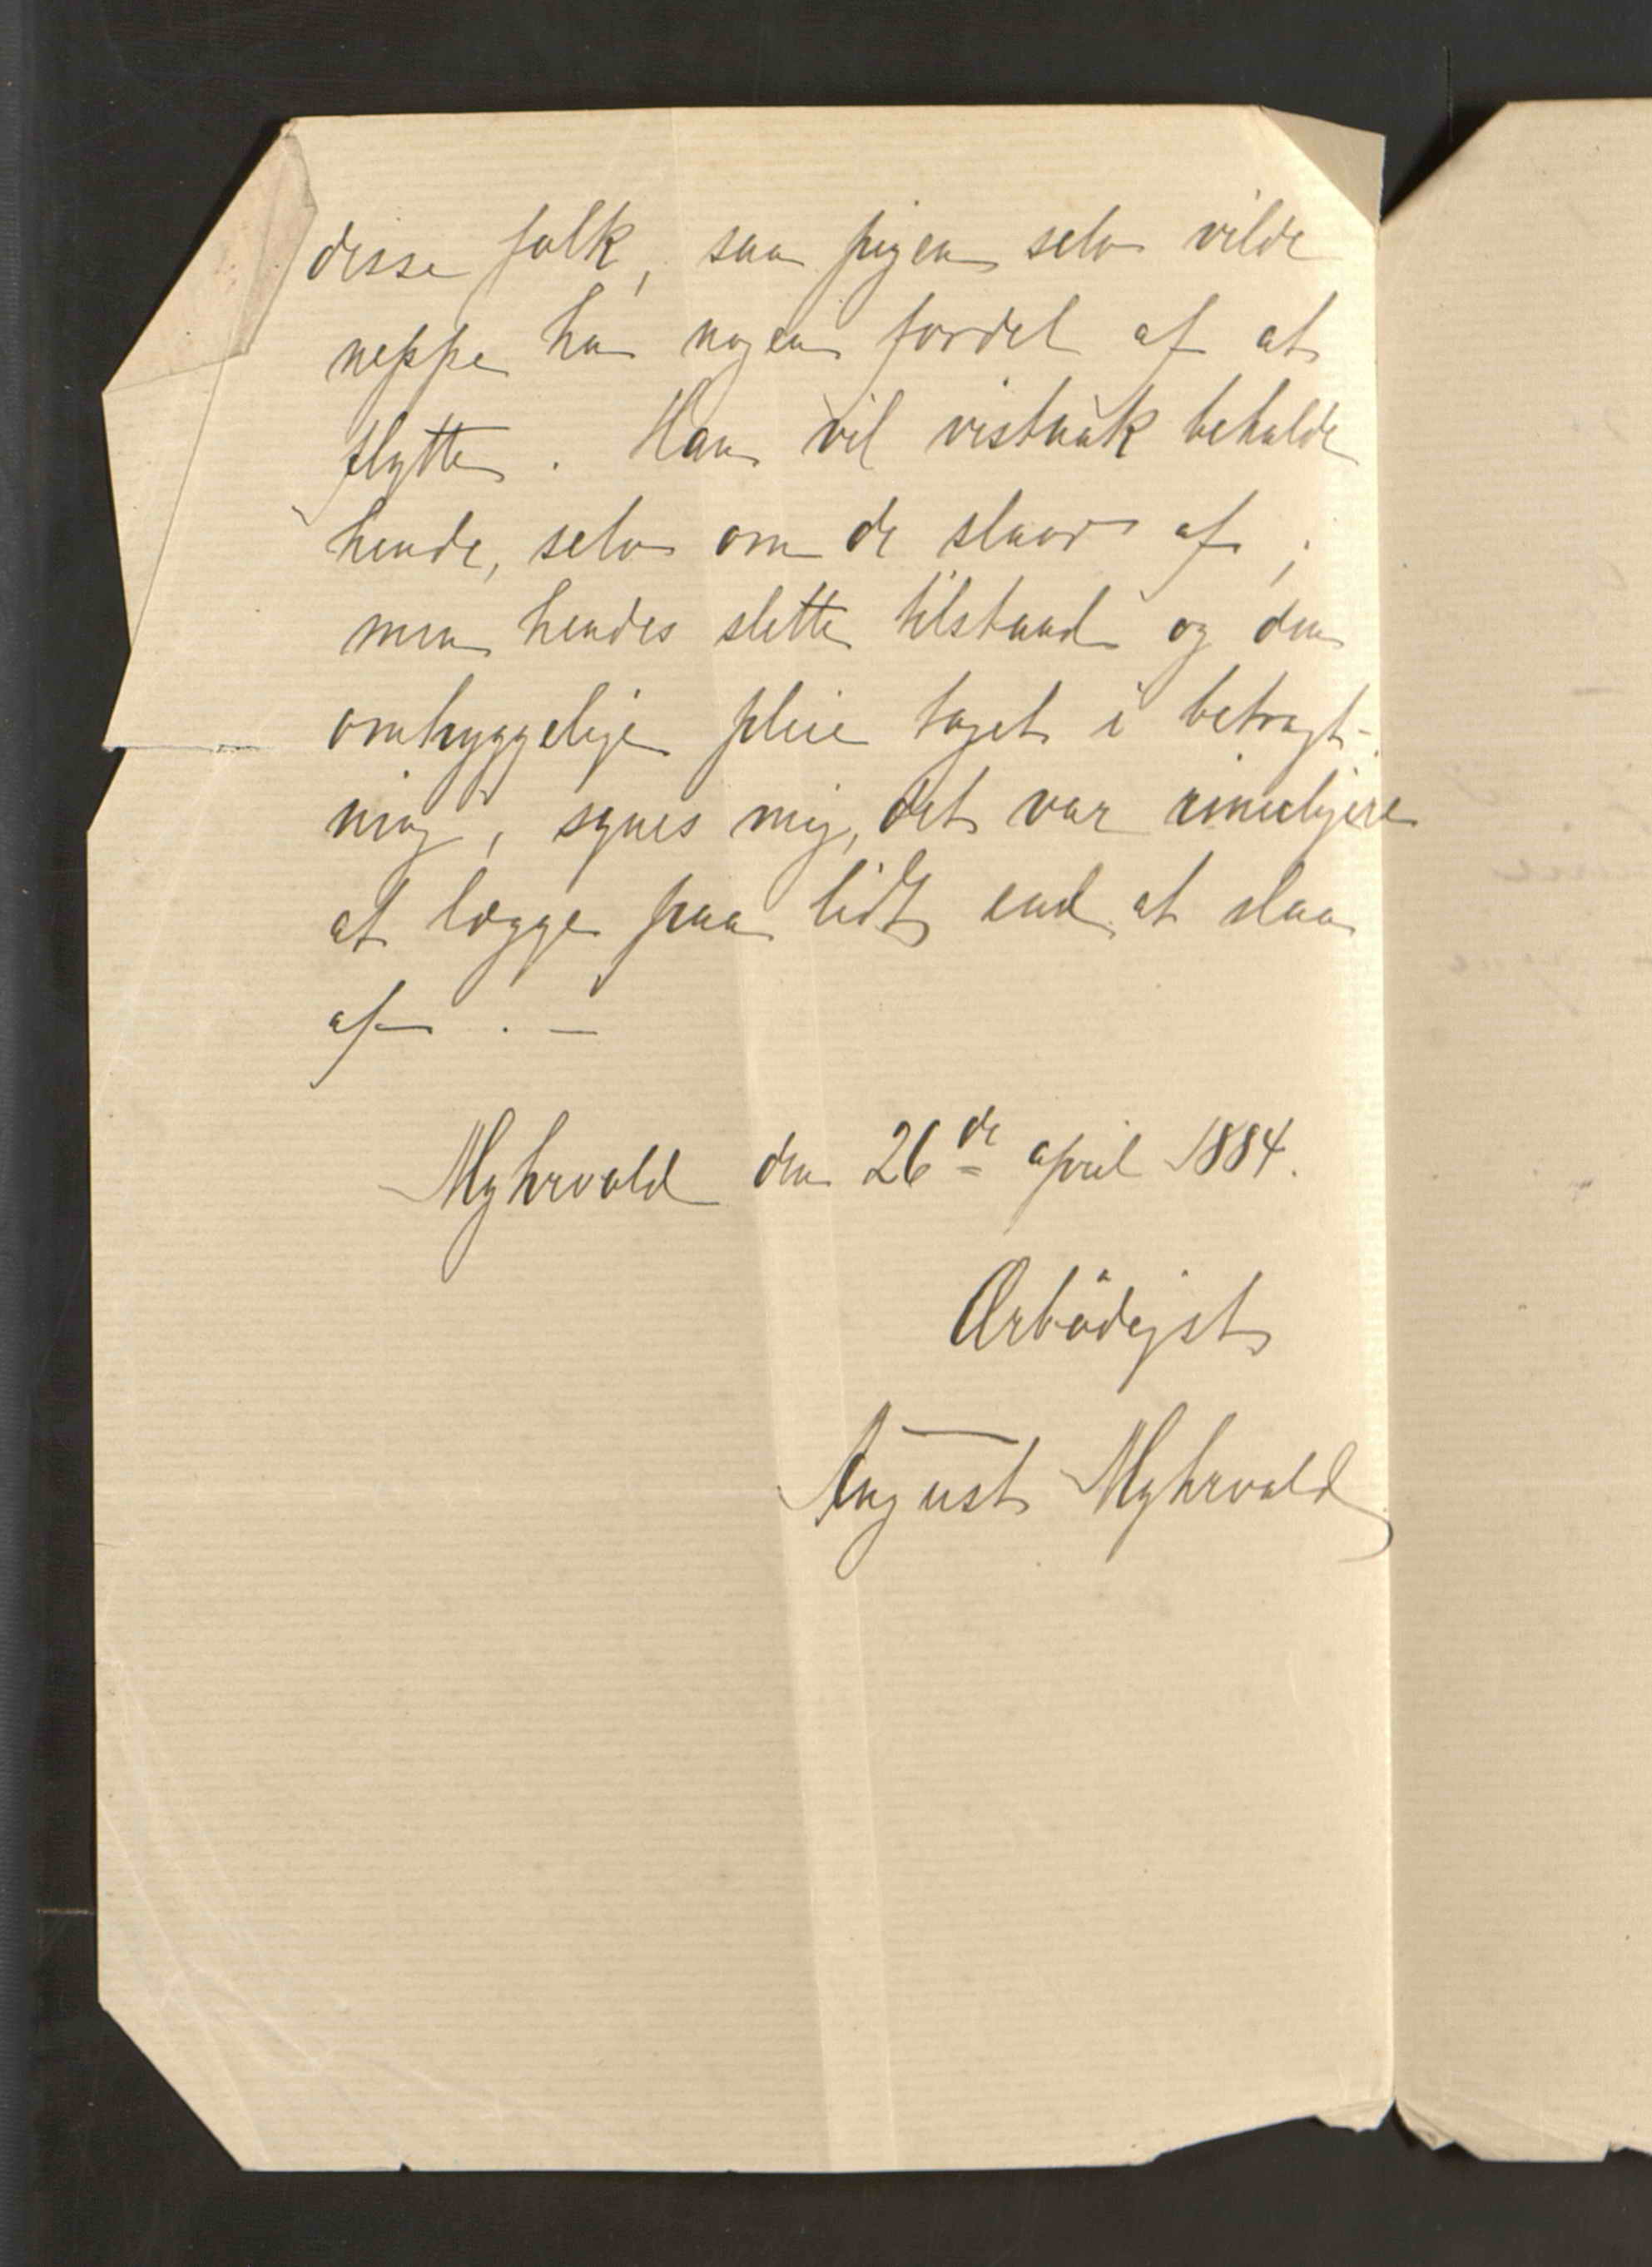 disse folk, saa pigen selv vilde
neppe ha nogen fordel af at
flytte. Han vil vistnok beholde
hende, selv om de slaar af;
men hendes slette tilstand og den
omhyggelige pleie taget i betragt-
ning, synes mig, det var rimeligere
at lægge paa lidt end at slaa
af. –
Myhrvold den 26de april 1884.
Ærbödigst
August Myhrvold